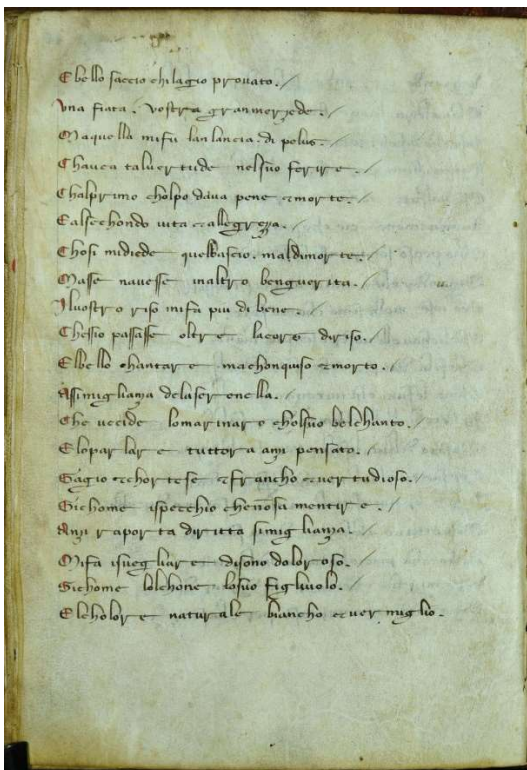 E bello saccio chilagio prouato. /
Vna fiata. vostra granmerzede. /
Maquella mifu lanlancia. di pelus. /
Chauea taluertude nelsuo ferire. /
Chalprimo cholpo daua pene & morte. /
E alsechondo uita & allegreza. /
Chosi midiede quelbascio. maldimorte. /
Masse nauesse inaltro benguerita. /
Iluostro riso mifu piu di bene. /
Chessio passasse oltre lacore diriso. /
Elbello chantare machonquiso & morto. /
Asimiglianza delaserenella. /
Che uccide lomarinaro cholsuo belchanto. /
E loparlare tuttora anzi pensato. /
Sagio & chortese & francho & uertudioso. /
Sichome ispecchio chenosa mentire. /
Anzi raporta diritta simiglianza. /
Mifa isuegliare disono doloroso. /
Sichome lolehone losuo figliuolo. /
Elcholore naturale biancho & uermiglio.